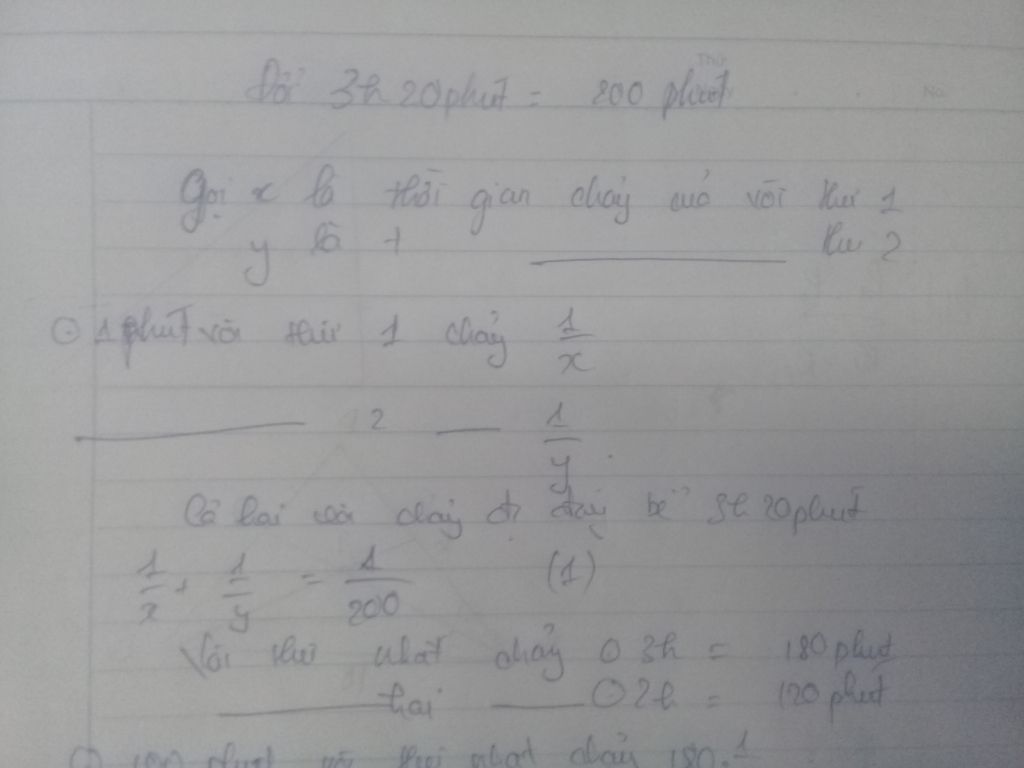 Đổi 3h 20 phút = 200 phút
Gọi x là thời gian chảy của vòi thứ 1
y là t thứ 2
1 phút vòi thứ 1 chảy 1/x
2 1/y
Cả hai vòi chảy đầy bể 3h 20 phút
1/x + 1/y = 1/200 (1)
Vòi thứ nhất chảy 3h = 180 phút
hai 2h = 120 phút
180 phút vòi thứ nhất chảy 180. 1